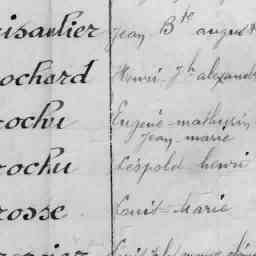 isautier Jean Bte august
ochard Henri Jh alexand
ochu Eugène mathurin
Jean-marie
ochu Léopold henri
osse Louis Marie